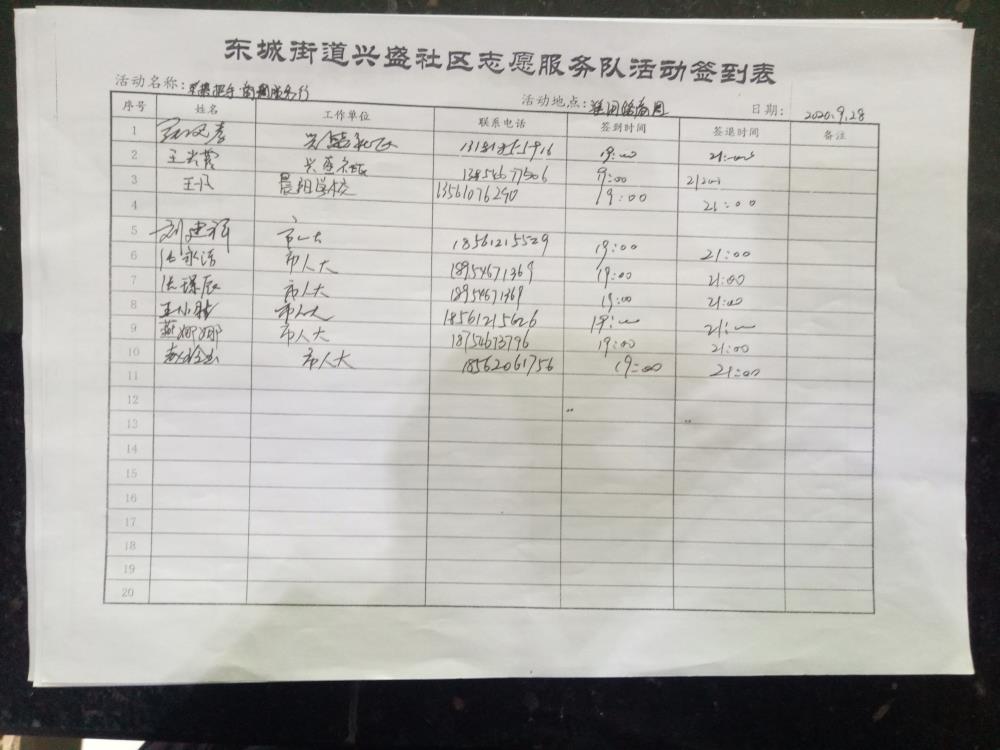 东城街道兴盛社区志愿服务队活动签到表
活动名称: 活动地点: 日期: 2020.9.28
序号 姓名 工作单位 联系电话 签到时间 签退时间 备注
1 19:00 21:00
2 兴盛社区 13854677506 19:00 21:00
3 王凡 晨阳学校 13561076290 19:00 21:00
4
5 刘建祥 市人大 18561215529 19:00 21:00
6 市人大 18954671369 19:00 21:00
7 市人大 18954671369 19:00 21:00
8 王小 市人大 18561215626 19:00 21:00
9 燕娜娜 市人大 18754673796 19:00 21:00
10 市人大 18562061756 19:00 21:00
11
12
13
14
15
16
17
18
19
20